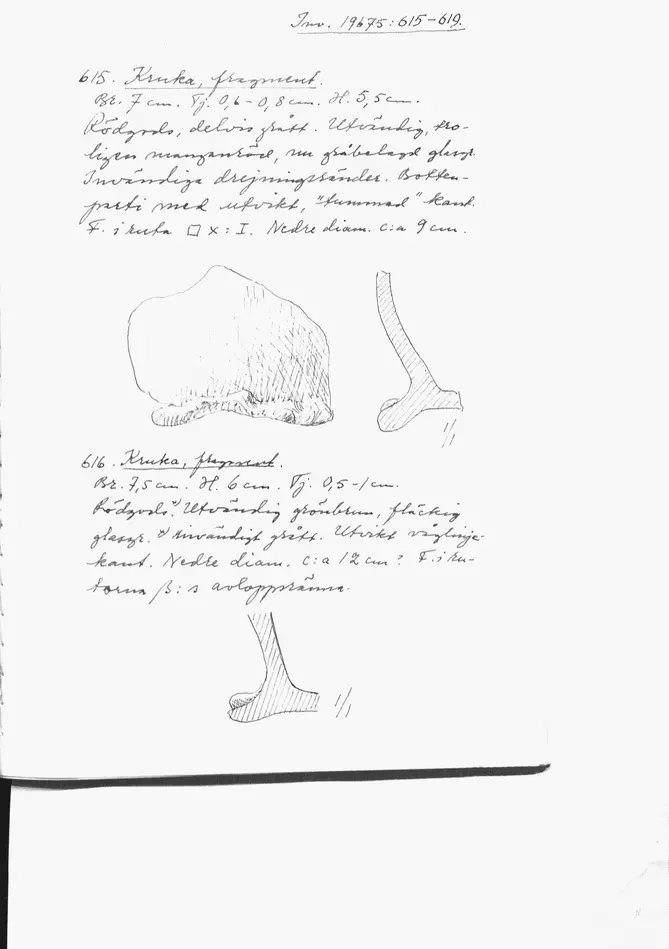 Inv. 19675:615-619.
615. Kruka, fragment.
Br. 7 cm. Tj. 0,6-0,8 cm. H. 5,5 cm.
Rödgods, delvis grått. Utvändig, tro-
ligen manganröd, nu gråbelagd glasyr.
Invändiga drejningsränder. Botten-
parti med utvikt, "tummad" kant.
F. i ruta □ x : I. Nedre diam. c:a 9 cm.
1/1
616. Kruka, fragment.
Br. 7,5 cm. H. 6 cm. Tj. 0,5-1 cm.
Rödgods x). Utvändig grönbrun, fläckig
glasyr. x) invändigt grått. Utvikt våglinje-
kant. Nedre diam. c:a 12 cm? F. i ru-
torna β:s avloppsränna.
1/1